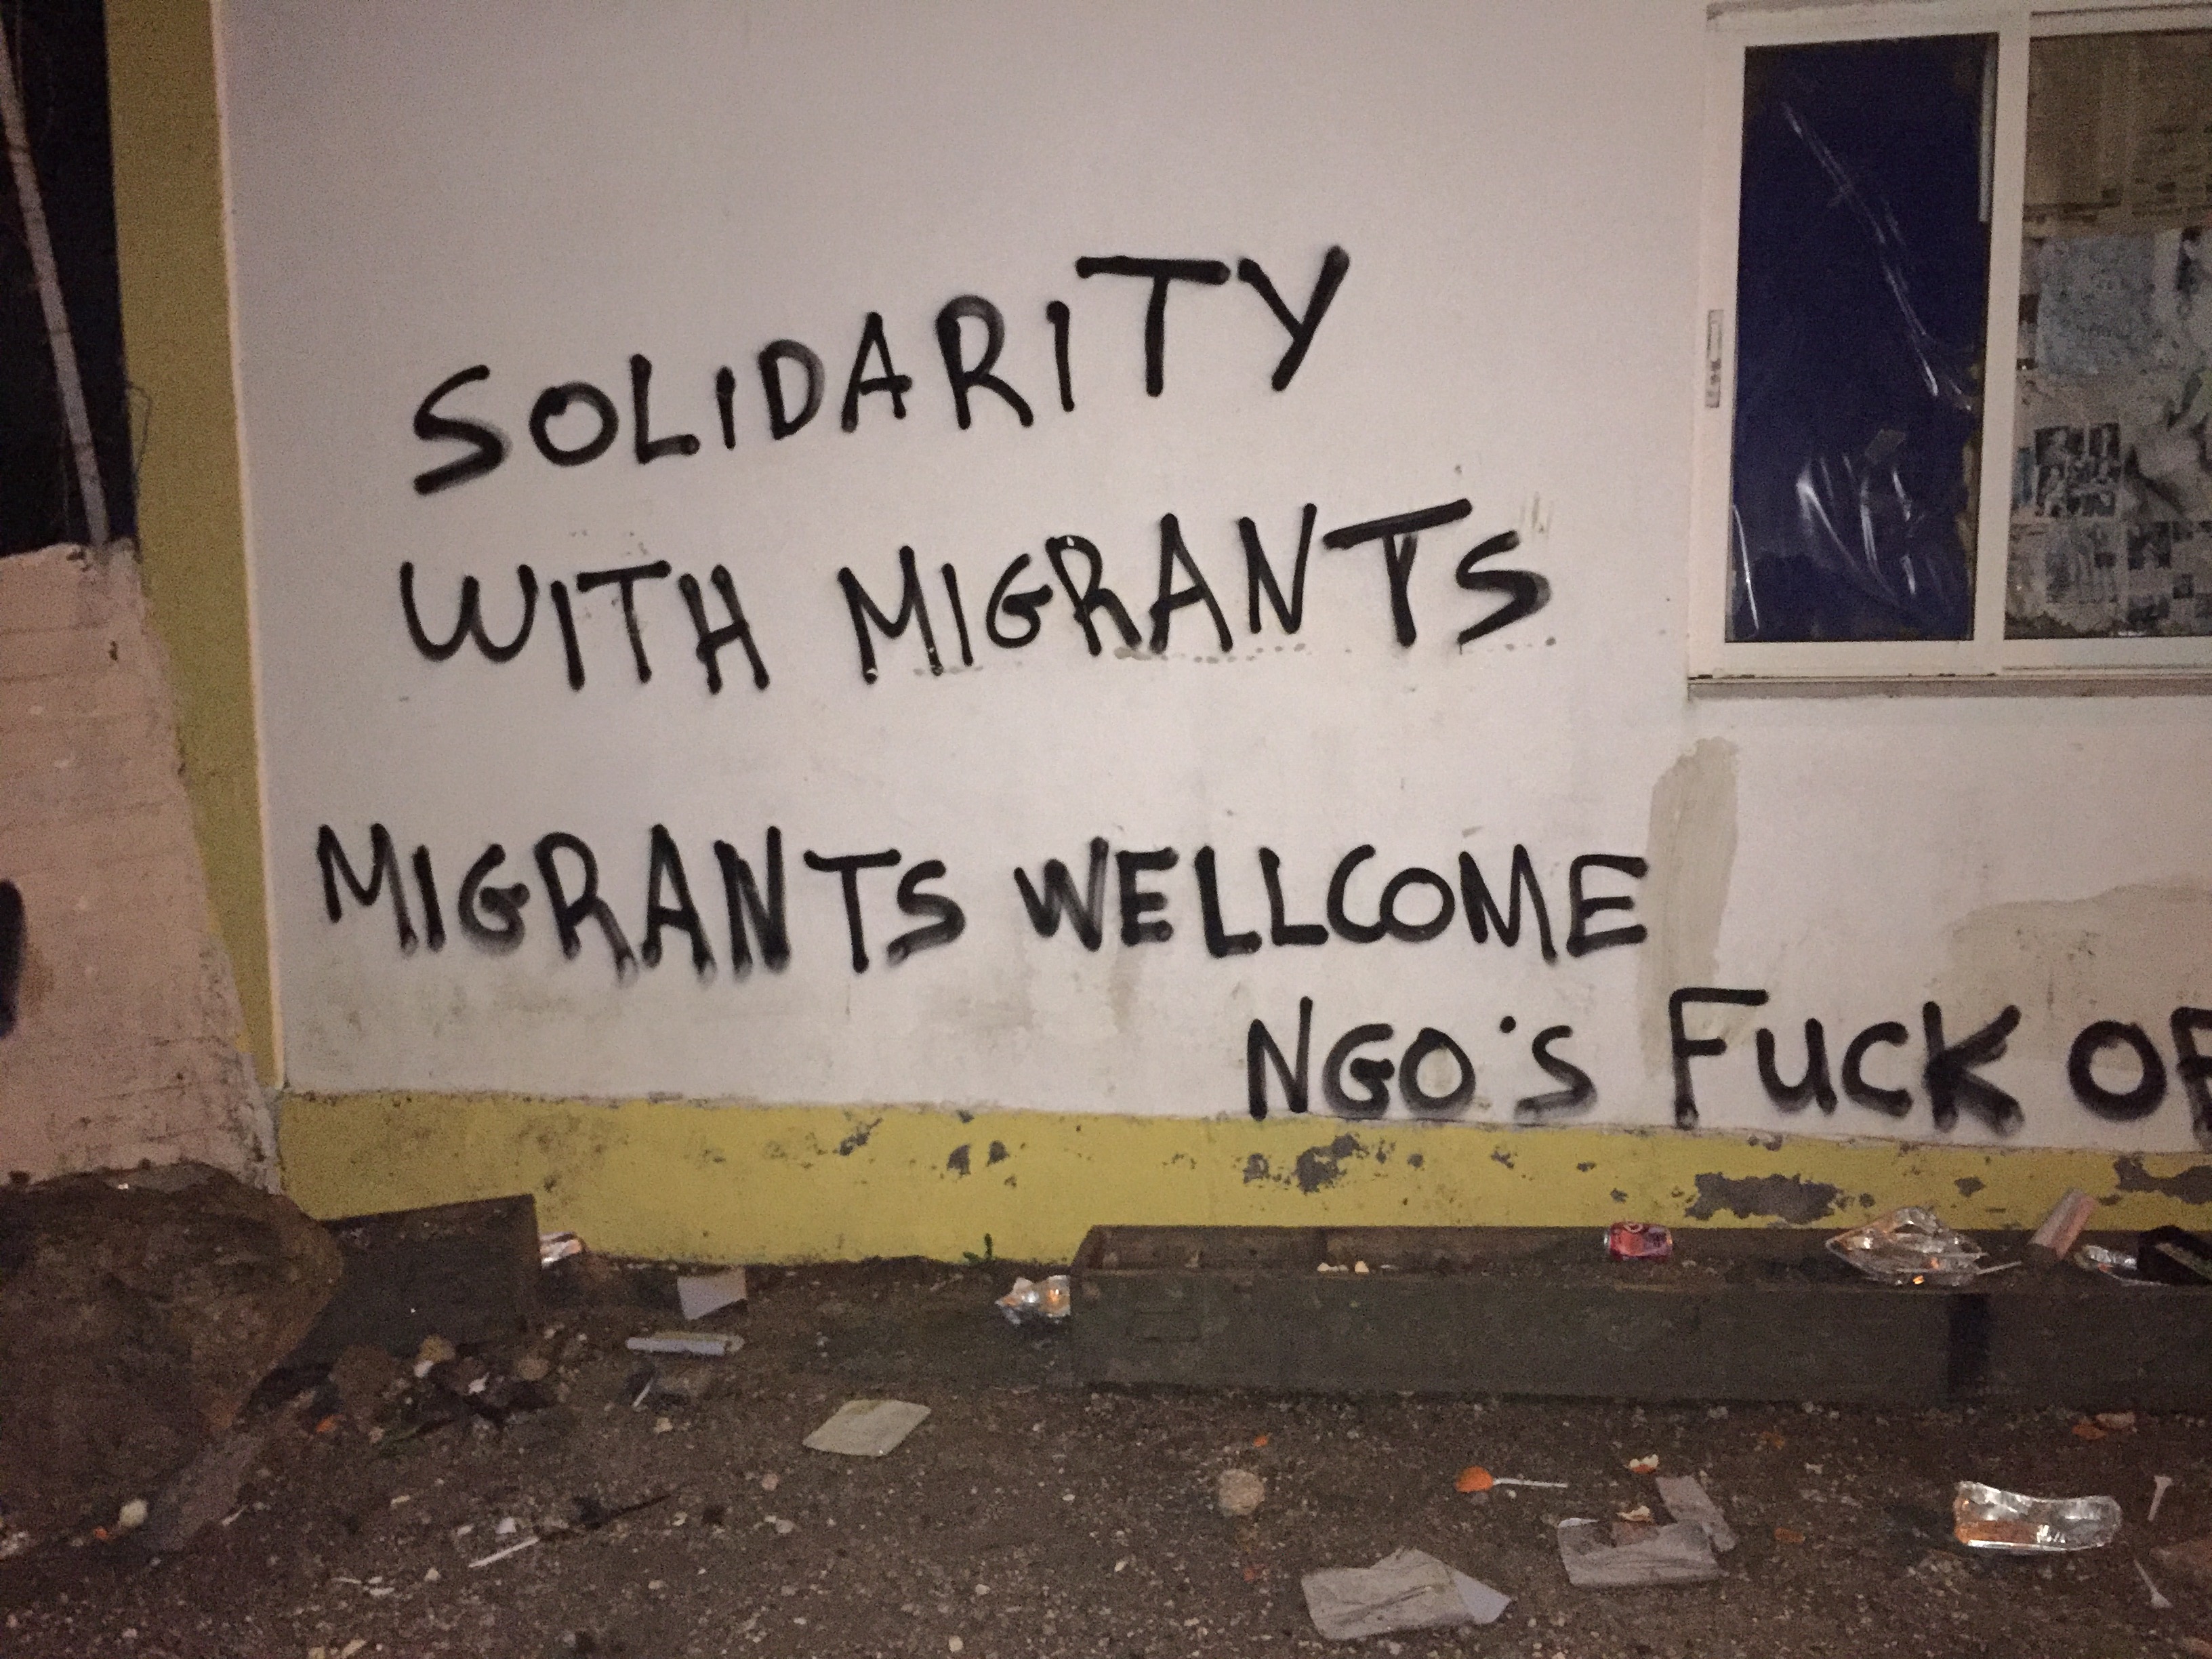 SOLIDARITY
WITH MIGRANTS
MIGRANTS WELLCOME
NGO'S FUCK OF